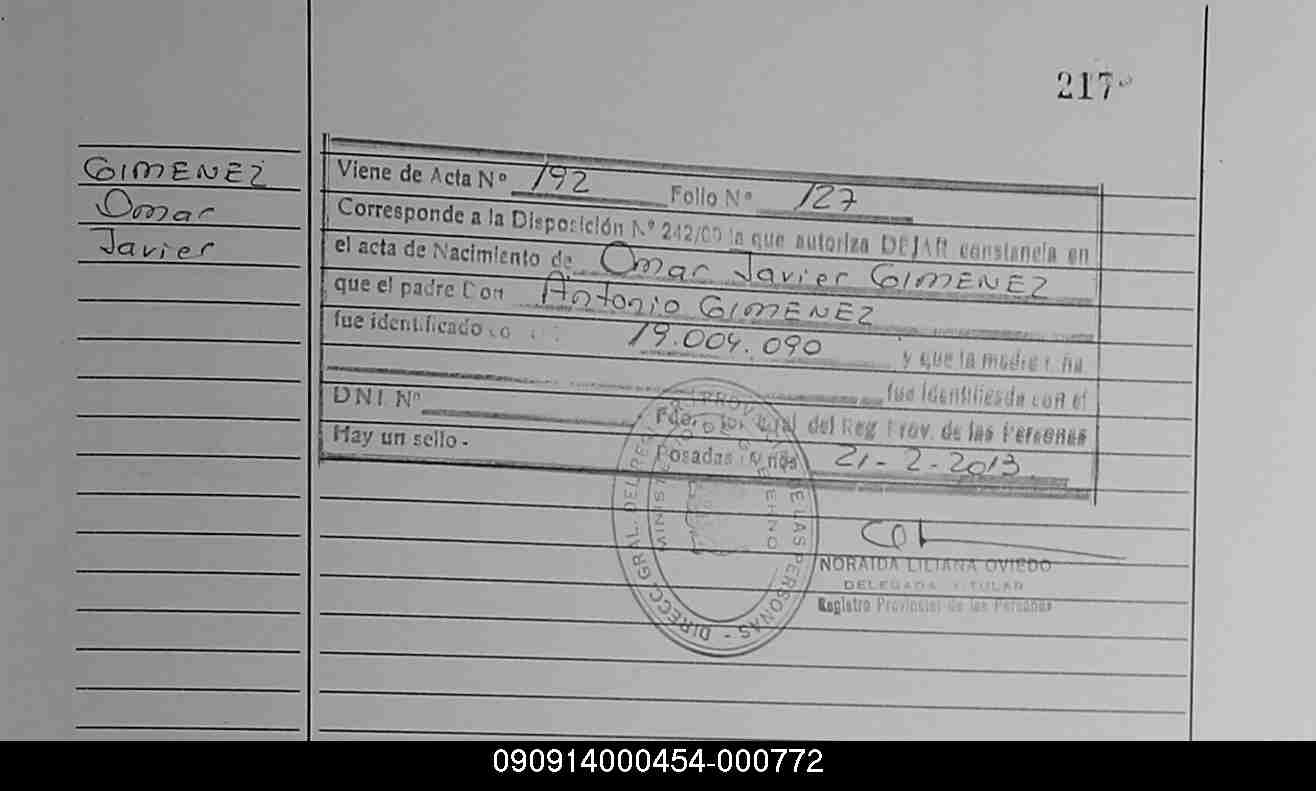 217
GIMENEZ
Omar
Javier
Viene de Acta Nº 192 Folio Nº 127
Corresponde a la Disposición Nº 242/00 la que autoriza DEJAR constancia en
el acta de Nacimiento de Omar Javier GIMENEZ
que el padre Don Antonio GIMENEZ
fue identificado 19.004.090 y que la madre
fue identificada con el
DNI. Nº del Reg. Prov. de las Personas
Hay un sello.- Posadas 21-2-2013
DIRECC. GRAL. DEL REG. PROV. DE LAS PERSONAS -
MINISTERIO DE GOBIERNO
NORAIDA LILIANA OVIEDO
DELEGADA TITULAR
Registro Provincial de las Personas
090914000454-000772